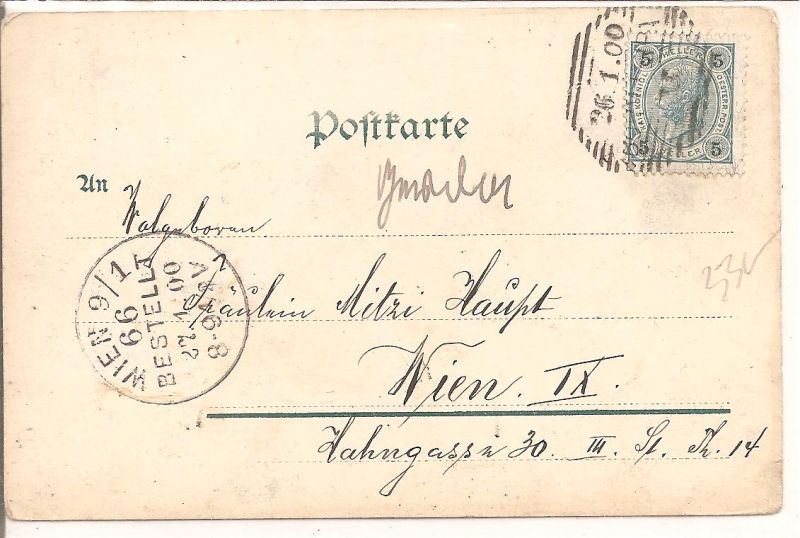 26.1.00
5 HELLER 5
KAIS. KOENIGL. OESTERR. POST.
5 HELLER 5
Postkarte
An
Wolgeboren
Fräulein Mitzi Haupt
Wien. IX.
Hahngasse 30. III. St. Th. 14
WIEN 9/1
66
BESTELLT
27.1.00